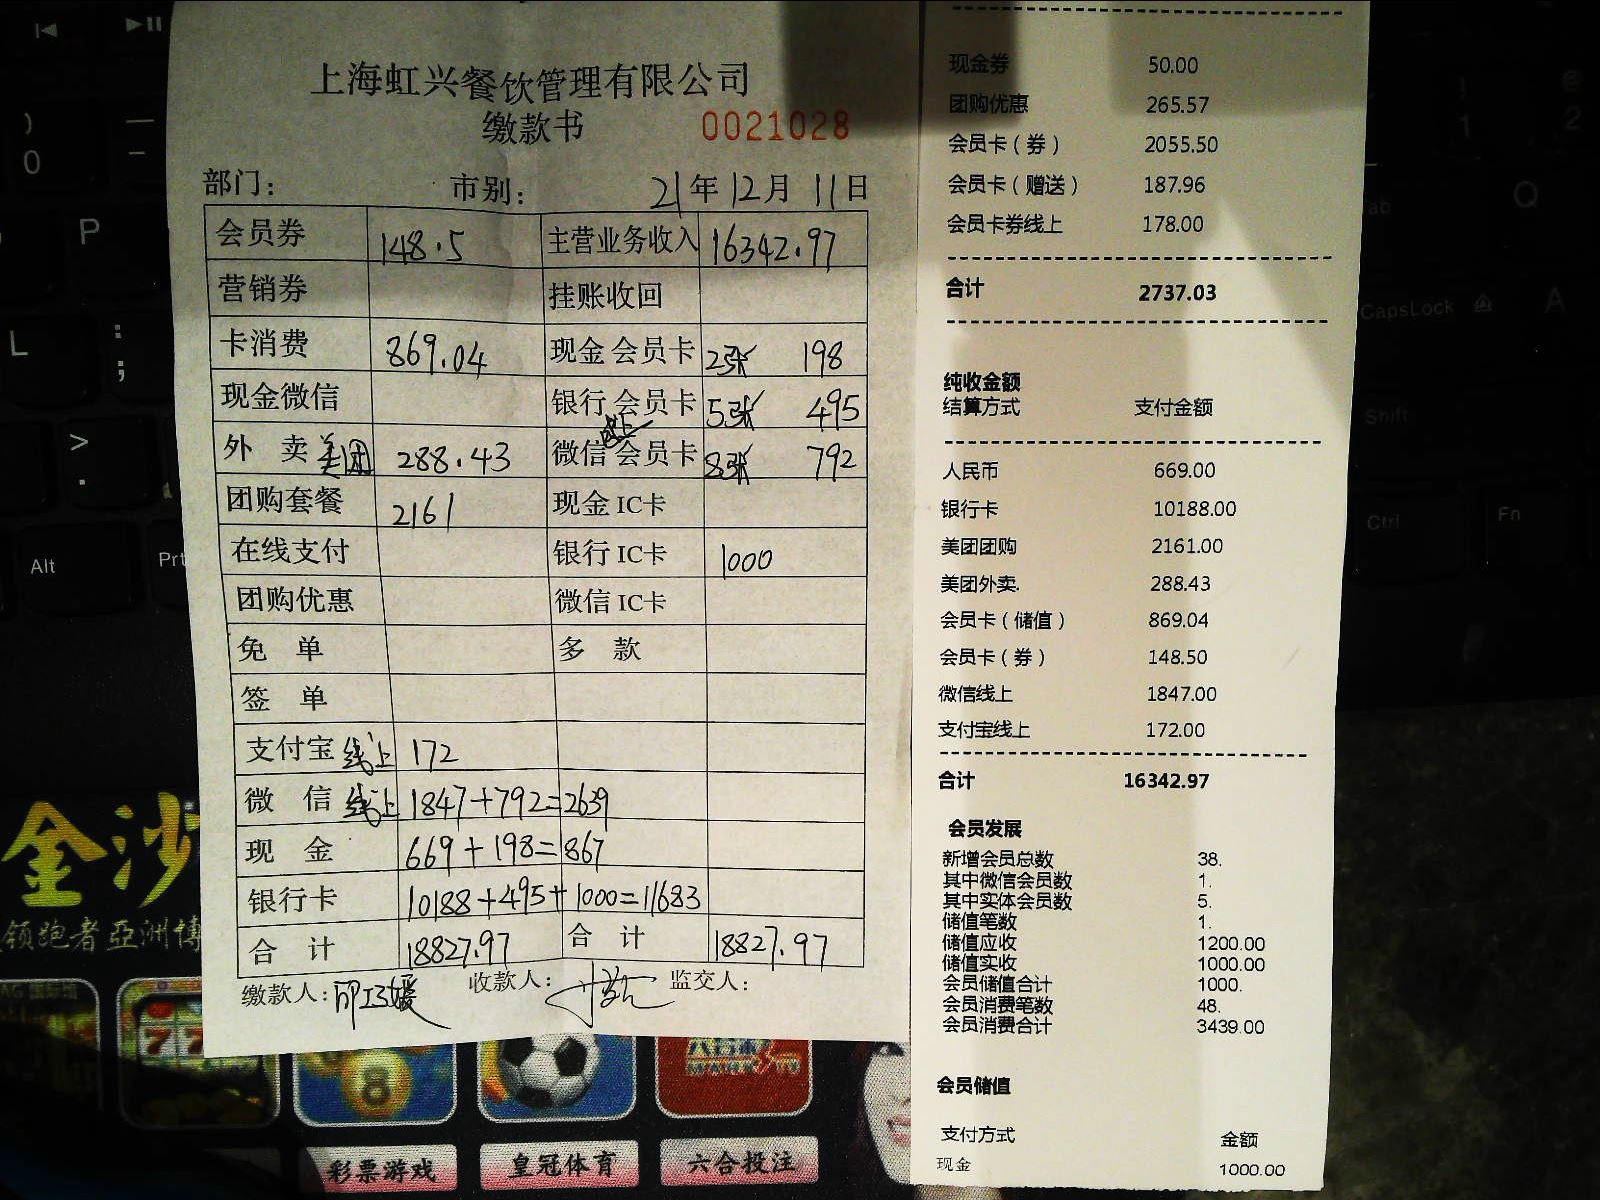 上海虹兴餐饮管理有限公司
缴款书 0021028
部门: 市别: 21年12月11日
会员券 148.5 主营业务收入 16342.97
营销券 挂账收回
卡消费 869.04 现金会员卡 2张 198
现金微信 银行会员卡 5张 495
外卖 美团 288.43 微信 线上 会员卡 8张 792
团购套餐 2161 现金IC卡
在线支付 银行IC卡 1000
团购优惠 微信IC卡
免单 多款
签单
支付宝 线上 172
微信 线上 1847+792=2639
现金 669+198=867
银行卡 10188+495+1000=11683
合计 18827.97 合计 18827.97
缴款人: 收款人: 监交人:
现金券 50.00
团购优惠 265.57
会员卡(券) 2055.50
会员卡(赠送) 187.96
会员卡券线上 178.00
合计 2737.03
纯收金额
结算方式 支付金额
人民币 669.00
银行卡 10188.00
美团团购 2161.00
美团外卖. 288.43
会员卡(储值) 869.04
会员卡(券) 148.50
微信线上 1847.00
支付宝线上 172.00
合计 16342.97
会员发展
新增会员总数 38.
其中微信会员数 1.
其中实体会员数 5.
储值笔数 1.
储值应收 1200.00
储值实收 1000.00
会员储值合计 1000.
会员消费笔数 48.
会员消费合计 3439.00
会员储值
支付方式 金额
现金 1000.00
)
0
P
L
:
;
>
.
Alt
Prt
!
1
@
2
Tab
Q
CapsLock
A
Shift
Ctrl
Fn
金沙
领跑者亞洲博
77
8
彩票游戏
皇冠体育
六合投注